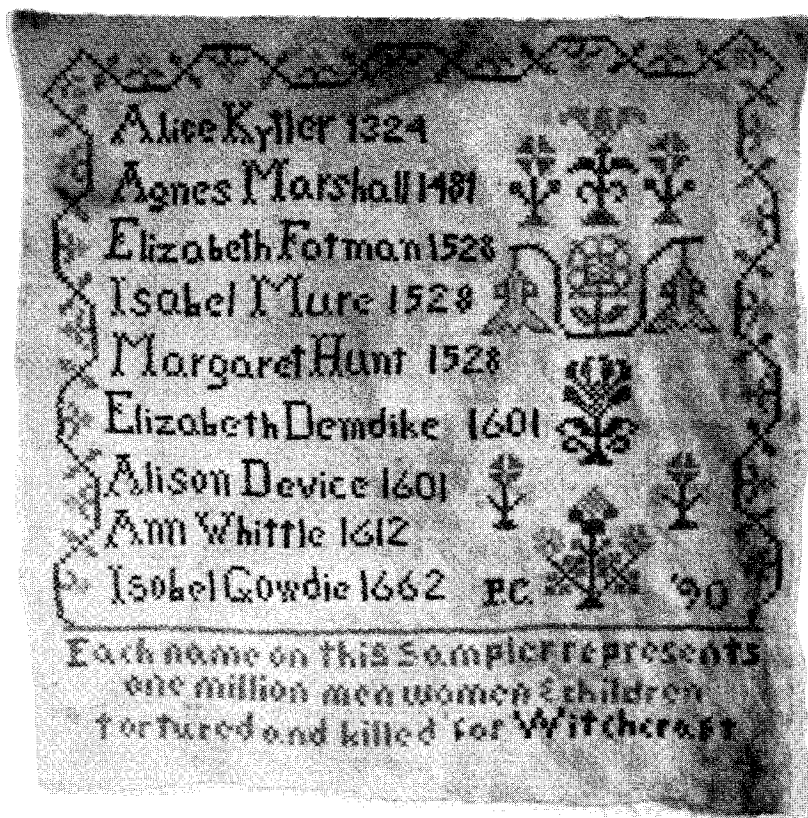 Alice Kytler 1324
Agnes Marshall 1481
Elizabeth Fotman 1528
Isabel Mure 1528
Margaret Hunt 1528
Elizabeth Demdike 1601
Alison Device 1601
Ann Whittle 1612
Isobel Gowdie 1662 P.C. '90
Each name on this Sampler represents
one million men women & children
tortured and killed for Witchcraft